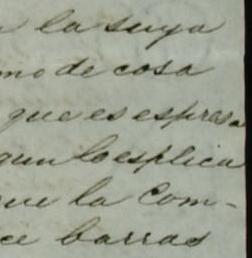 la suya
mo de cosa
que es espresa
gun lo esplica
que la Com-
ce barras